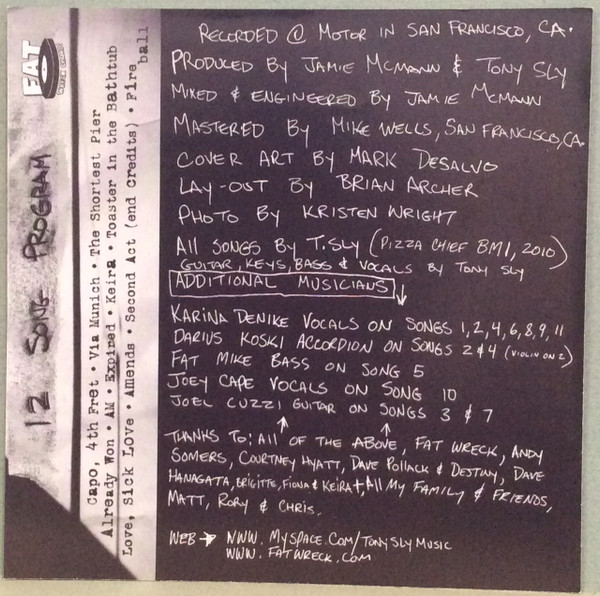 FAT
WRECK CHORDS
12 SONG PROGRAM
Capo, 4th Fret • Via Munich • The Shortest Pier
Already Won • AM • Expired • Keira • Toaster in the Bathtub
Love, Sick Love • Amends • Second Act (end credits) • Fire
ball
RECORDED @ MOTOR IN SAN FRANCISCO, CA.
PRODUCED BY JAMIE MCMANN & TONY SLY
MIXED & ENGINEERED BY JAMIE MCMANN
MASTERED BY MIKE WELLS, SAN FRANCISCO, CA.
COVER ART BY MARK DESALVO
LAY-OUT BY BRIAN ARCHER
PHOTO BY KRISTEN WRIGHT
All SONGS BY T. SLY (PIZZA CHIEF BMI, 2010)
GUITAR, KEYS, BASS & VOCALS BY TONY SLY
ADDITIONAL MUSICIANS
KARINA DENIKE VOCALS ON SONGS 1,2,4,6,8,9,11
DARIUS KOSKI ACCORDION ON SONGS 2 & 4 (VIOLIN ON 2)
FAT MIKE BASS ON SONG 5
JOEY CAPE VOCALS ON SONG 10
JOEL CUZZI GUITAR ON SONGS 3 & 7
THANKS TO: All OF THE ABOVE, FAT WRECK, ANDY
SOMERS, COURTNEY HYATT, DAVE POLLACK & DESTINY, DAVE
HANAGATA, BRIGITTE, FIONA & KEIRA + All MY FAMILY & FRIENDS,
MATT, RORY & CHRIS.
WEB → WWW.MYSPACE.COM/TONYSLYMUSIC
WWW.FATWRECK.COM